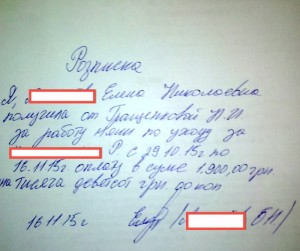 Розписка
Я, Елена Николаевна
получила от Гращенковой Н.И.
за работу няни по уходу за
Р с 29.10.15г по
16.11.15г оплату в сумме 1.900,00грн
тысяча девятсот грн. 00 коп
16.11.15г